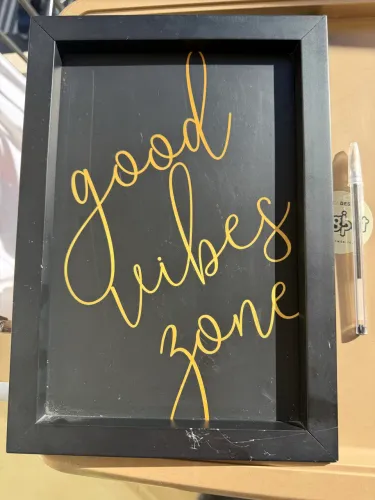 good
vibes
zone